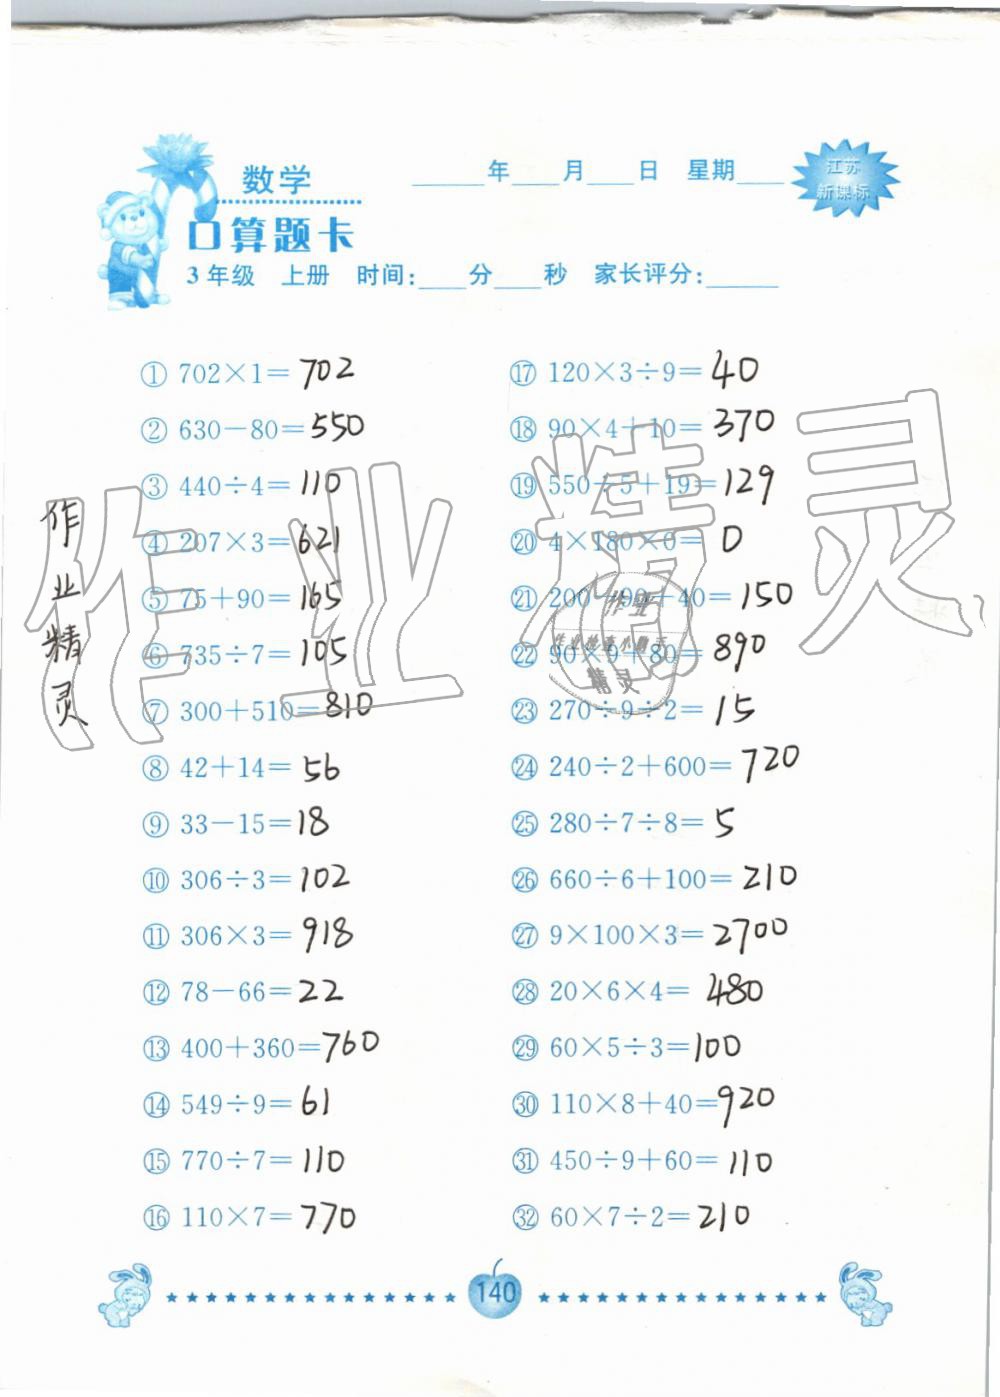 数学
____年____月____日 星期____
江苏
新课标
口算题卡
3年级 上册 时间:____分____秒 家长评分:______
① 702×1=702
② 630-80=550
③ 440÷4=110
④ 207×3=621
⑤ 75+90=165
⑥ 735÷7=105
⑦ 300+510=810
⑧ 42+14=56
⑨ 33-15=18
⑩ 306÷3=102
⑪ 306×3=918
⑫ 78-66=22
⑬ 400+360=760
⑭ 549÷9=61
⑮ 770÷7=110
⑯ 110×7=770
⑰ 120×3÷9=40
⑱ 90×4+10=370
⑲ 550÷5+19=129
⑳ 4×180×0=0
㉑ 200-90+40=150
㉒ 90×9+80=890
㉓ 270÷9÷2=15
㉔ 240÷2+600=720
㉕ 280÷7÷8=5
㉖ 660÷6+100=210
㉗ 9×100×3=2700
㉘ 20×6×4=480
㉙ 60×5÷3=100
㉚ 110×8+40=920
㉛ 450÷9+60=110
㉜ 60×7÷2=210
作业精灵
作业精灵
作业
精灵
140